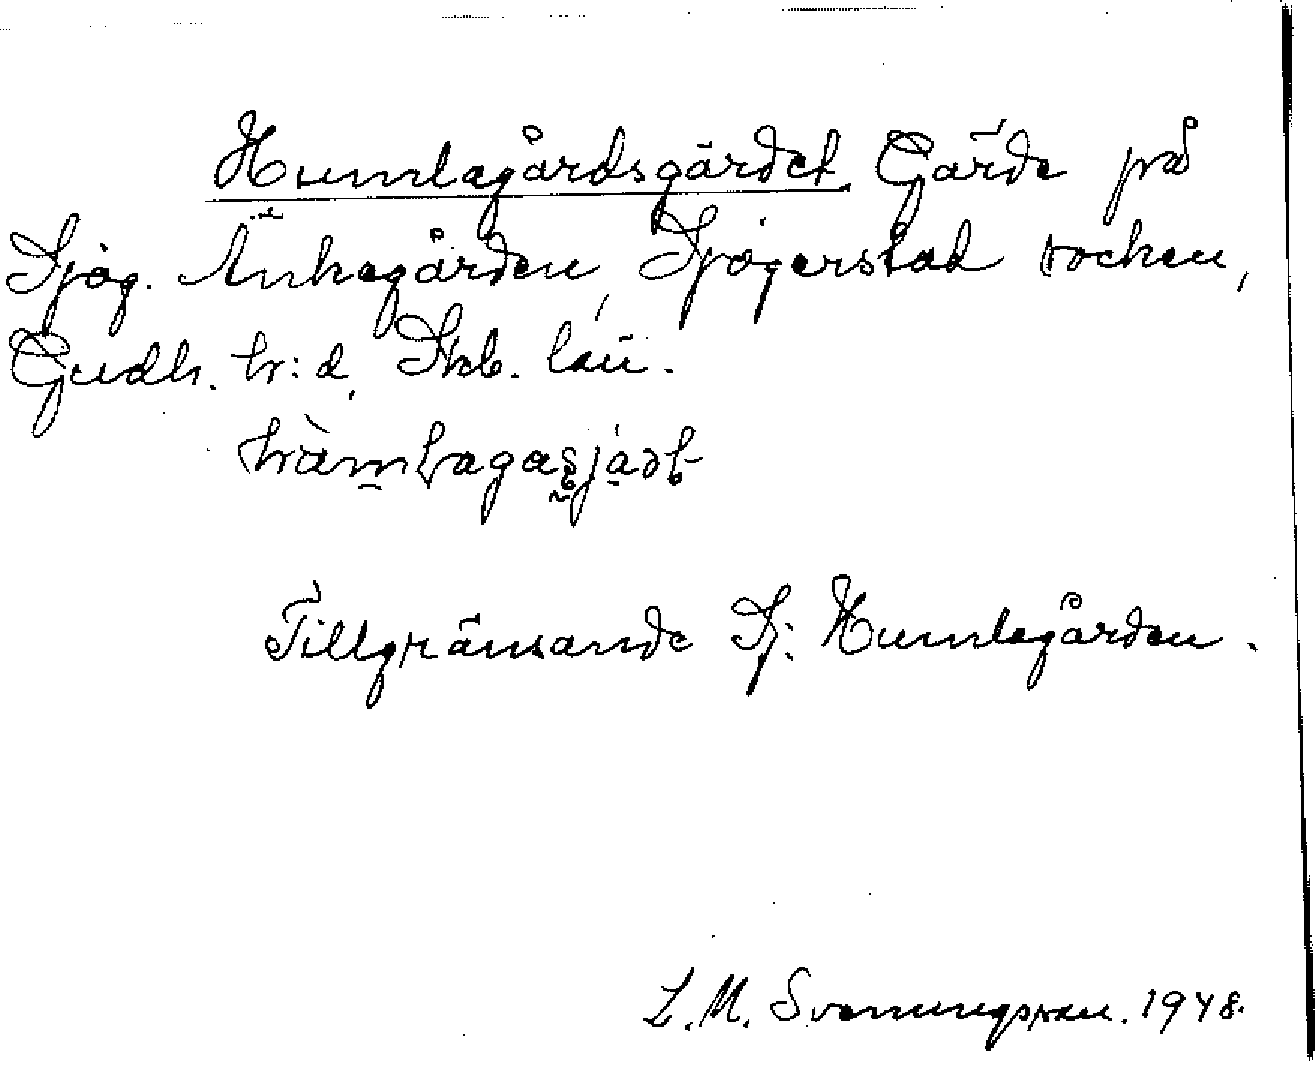 Humlagårdsgärdet Gärde på
Sjög. Änkagården, Sjögerstad socken,
Gudh. hr:d, Skb. län.
Tillgränsande Sj: Humlegården.
L.M. Svenungsson. 1948.